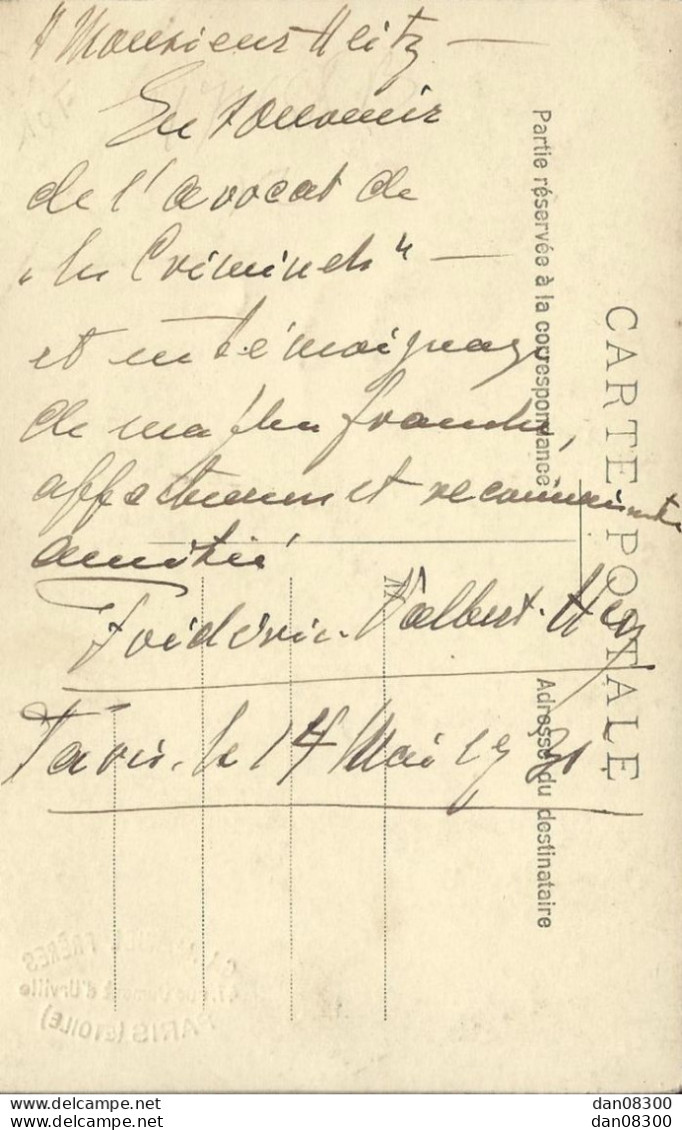 A Monsieur Heitz —
En souvenir
de l'avocat de
"les Criminels" —
et en témoignage
de ma plus franche,
affectueuse et reconnaissante
amitié
Frédéric Valbert-
Paris. le 14 Mai 19
CARTE POSTALE
Partie réservée à la correspondance
Adresse du destinataire
M
FRÈRES
d'Urville
PARIS (ETOILE)
dan08300
dan08300